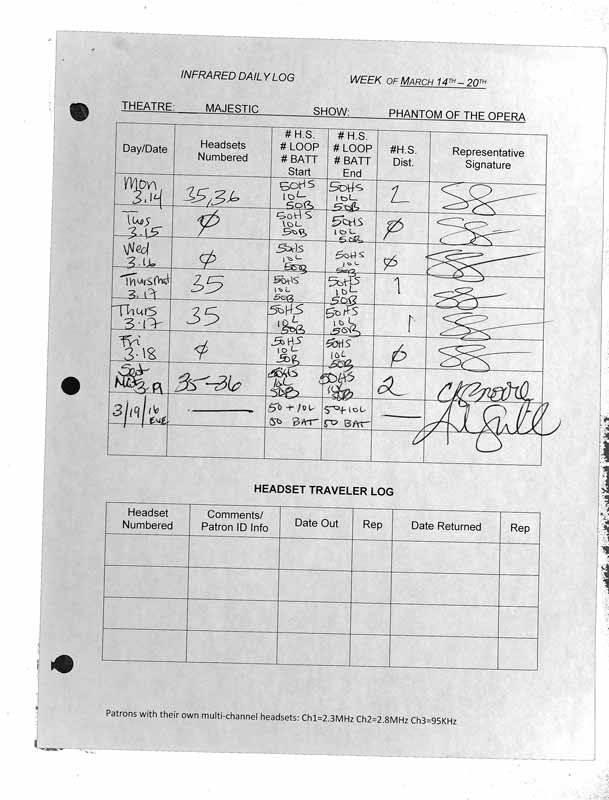 INFRARED DAILY LOG WEEK OF MARCH 14TH – 20TH
THEATRE: MAJESTIC SHOW: PHANTOM OF THE OPERA
Day/Date Headsets Numbered # H.S. # LOOP # BATT Start # H.S. # LOOP # BATT End #H.S. Dist. Representative Signature
Mon 3.14 35,36 50HS 10L 50B 50HS 10L 50B 2
Tues 3.15 Ø 50HS 10L 50B 50HS 10L 50B Ø
Wed 3.16 Ø 50HS 10L 50B 50HS 10L 50B Ø
Thurs Mat 3.17 35 50HS 10L 50B 50HS 10L 50B 1
Thurs 3.17 35 50HS 10L 50B 50HS 10L 50B 1
Fri 3.18 Ø 50HS 10L 50B 50HS 10L 50B Ø
Sat Mat 3.19 35-36 50HS 10L 50B 50HS 10L 50B 2
3/19/16 EVE — 50 + 10L 50 BAT 50+10L 50 BAT —
HEADSET TRAVELER LOG
Headset Numbered Comments/ Patron ID Info Date Out Rep Date Returned Rep
Patrons with their own multi-channel headsets: Ch1=2.3MHz Ch2=2.8MHz Ch3=95KHz